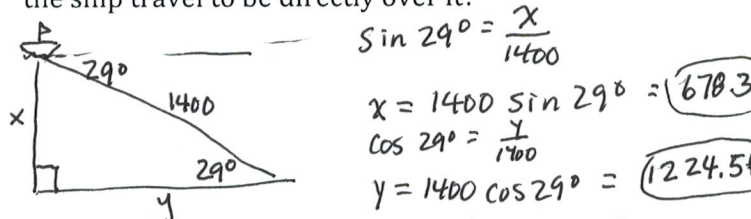 the ship travel to be directly over it?
29°
1400
x
29°
y
sin 29° = x/1400
x = 1400 sin 29° = 678.3
cos 29° = y/1400
y = 1400 cos 29° = 1224.5